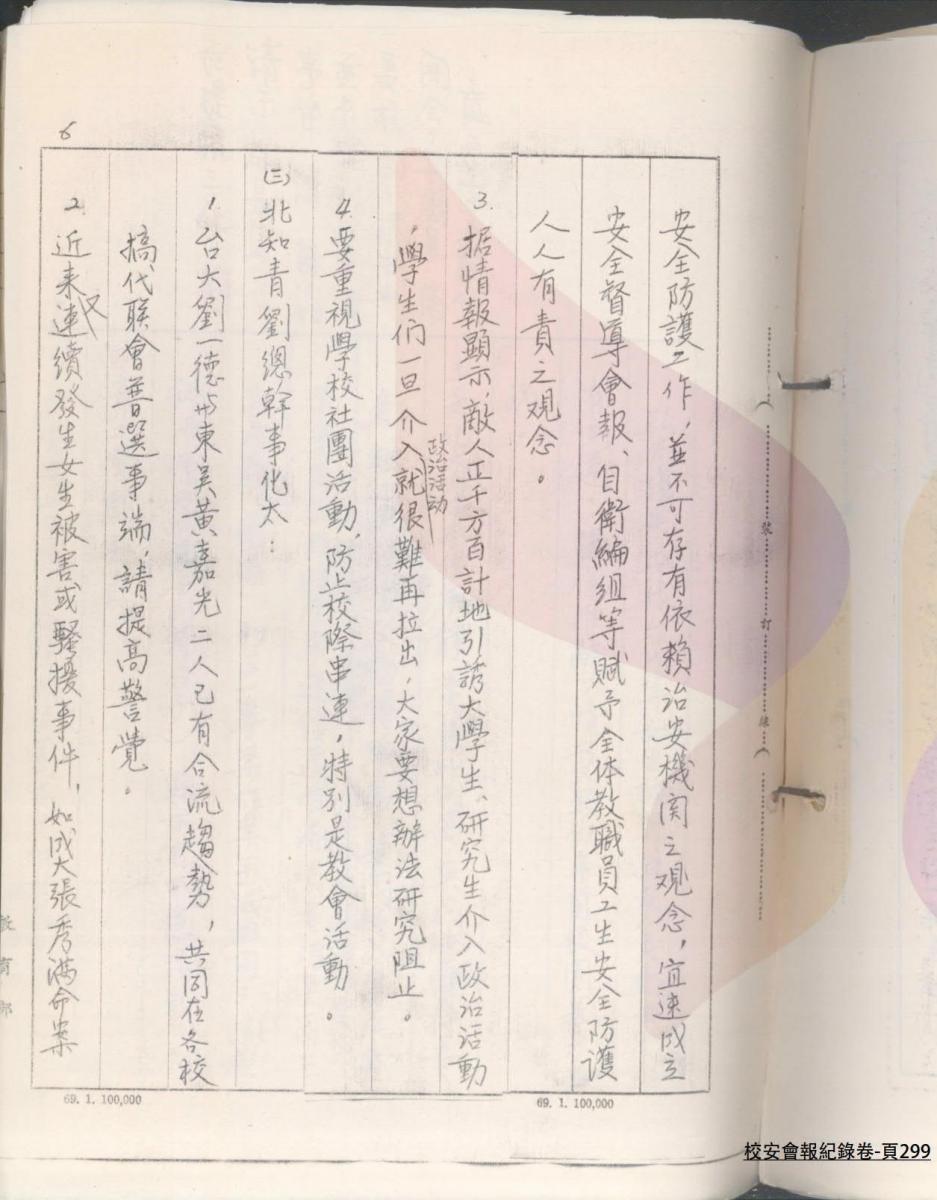 6
安全防護工作，並不可存有依賴治安機関之观念，宜速成立
安全督導會報、自衛編組等賦予全体教職員工生安全防護
人人有責之观念。
3. 据情報顯示，敵人正千方百計地引誘大學生、研究生介入政治活動
，學生们一旦介入政治活动就很難再拉出，大家要想辦法研究阻止。
4. 要重視學校社團活動，防止校際串連，特別是教會活動。
㈢北知青劉總幹事化太：
1. 台大劉一德与東吳黃嘉光二人已有合流趨勢，共同在各校
搞代联會普選事端，請提高警覺。
2. 近来又連續發生女生被害或騷擾事件，如成大張秀滿命案
裝
訂
線
教育部
69. 1. 100,000
69. 1. 100,000
校安會報紀錄卷-頁299